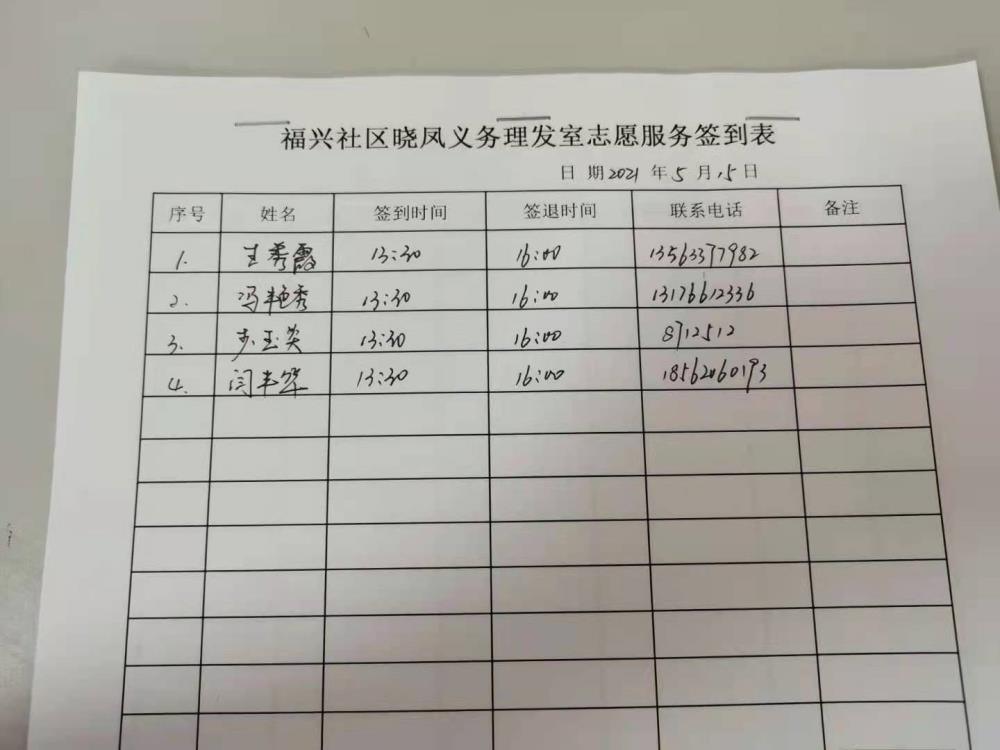 福兴社区晓凤义务理发室志愿服务签到表
日 期 2021 年 5 月 15 日
序号 姓名 签到时间 签退时间 联系电话 备注
1. 王秀霞 13:30 16:00 13563377982
2. 冯艳秀 13:30 16:00 13176612336
3. 玉英 13:30 16:00 8712512
4. 闫丰 13:30 16:00 18562060193